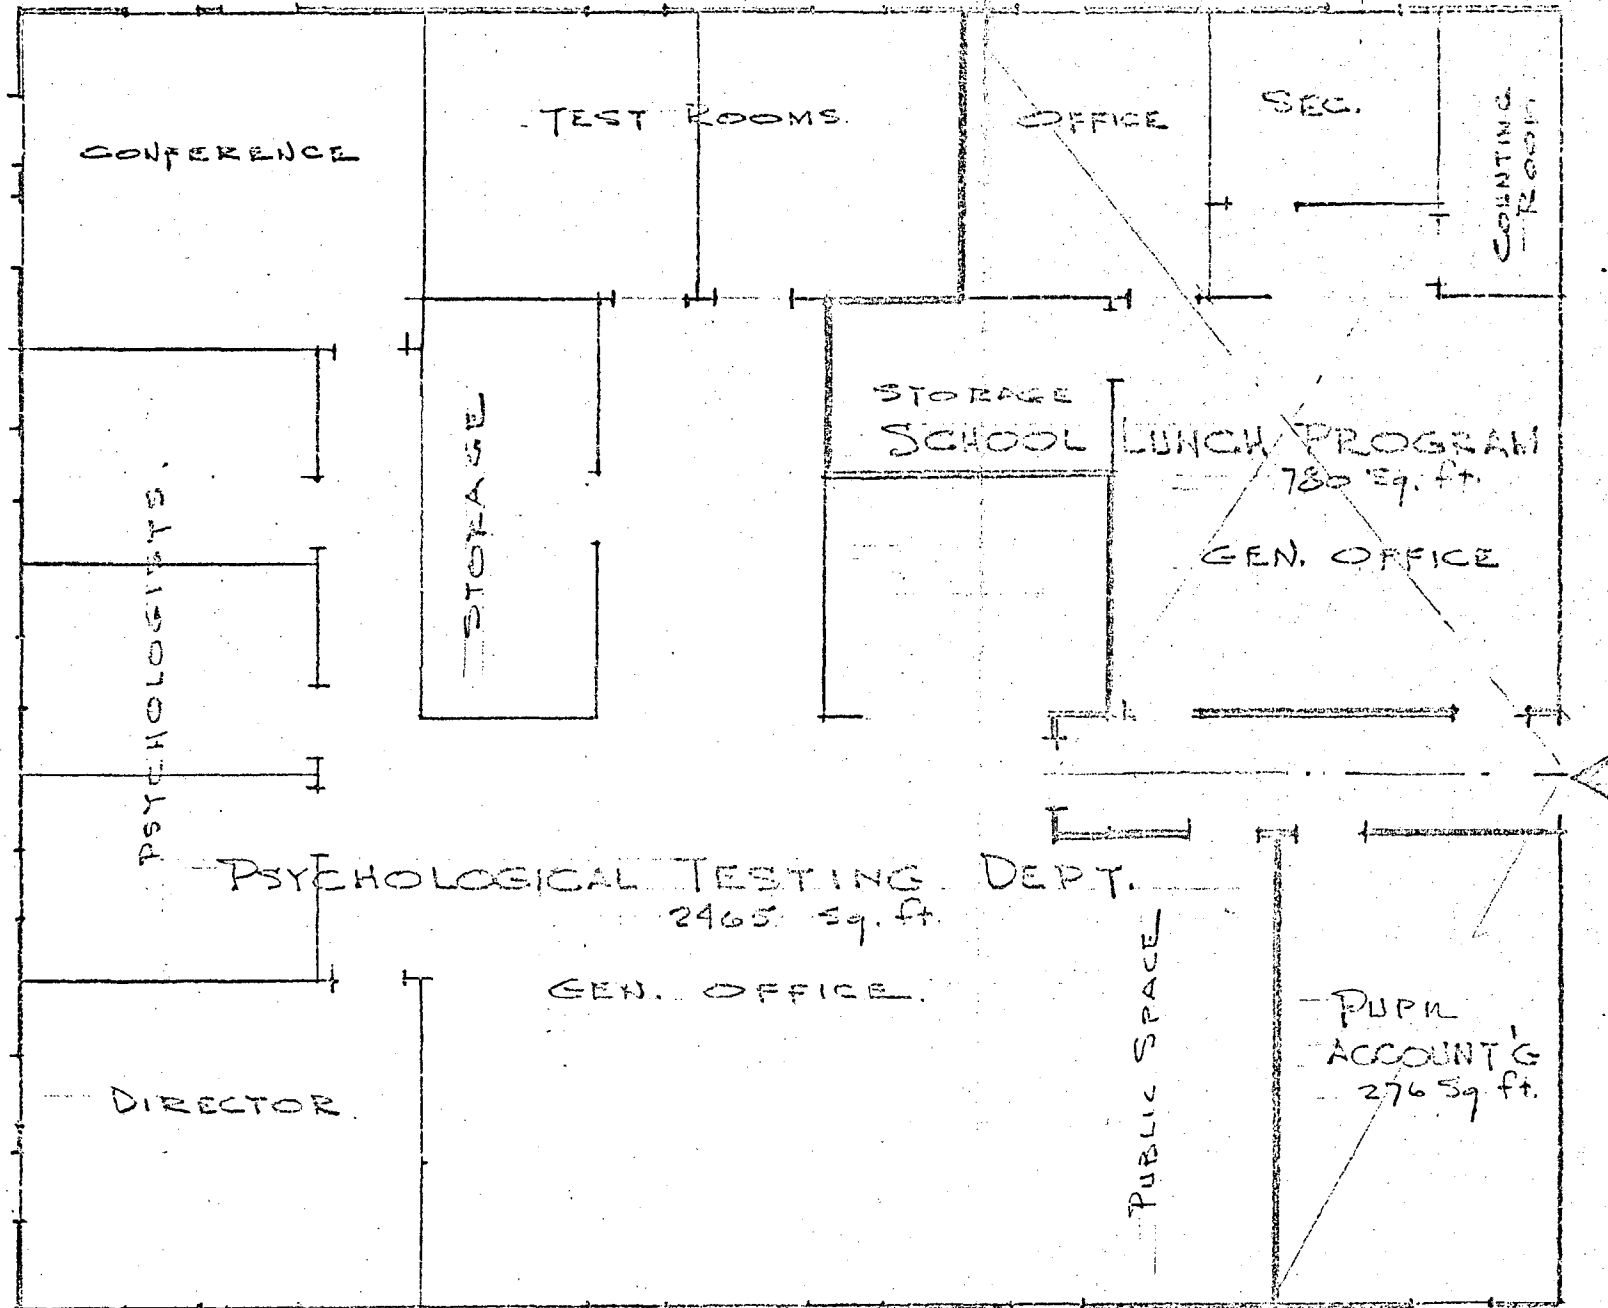 CONFERENCE
TEST ROOMS
OFFICE
SEC.
COUNTING
ROOM
STORAGE
STORAGE
SCHOOL LUNCH PROGRAM
780 Sq. ft.
GEN. OFFICE
PSYCHOLOGISTS.
PSYCHOLOGICAL TESTING DEPT.
2465 Sq. ft.
GEN. OFFICE.
PUBLIC SPACE
PUPIL
ACCOUNT'G
276 Sq. ft.
DIRECTOR.